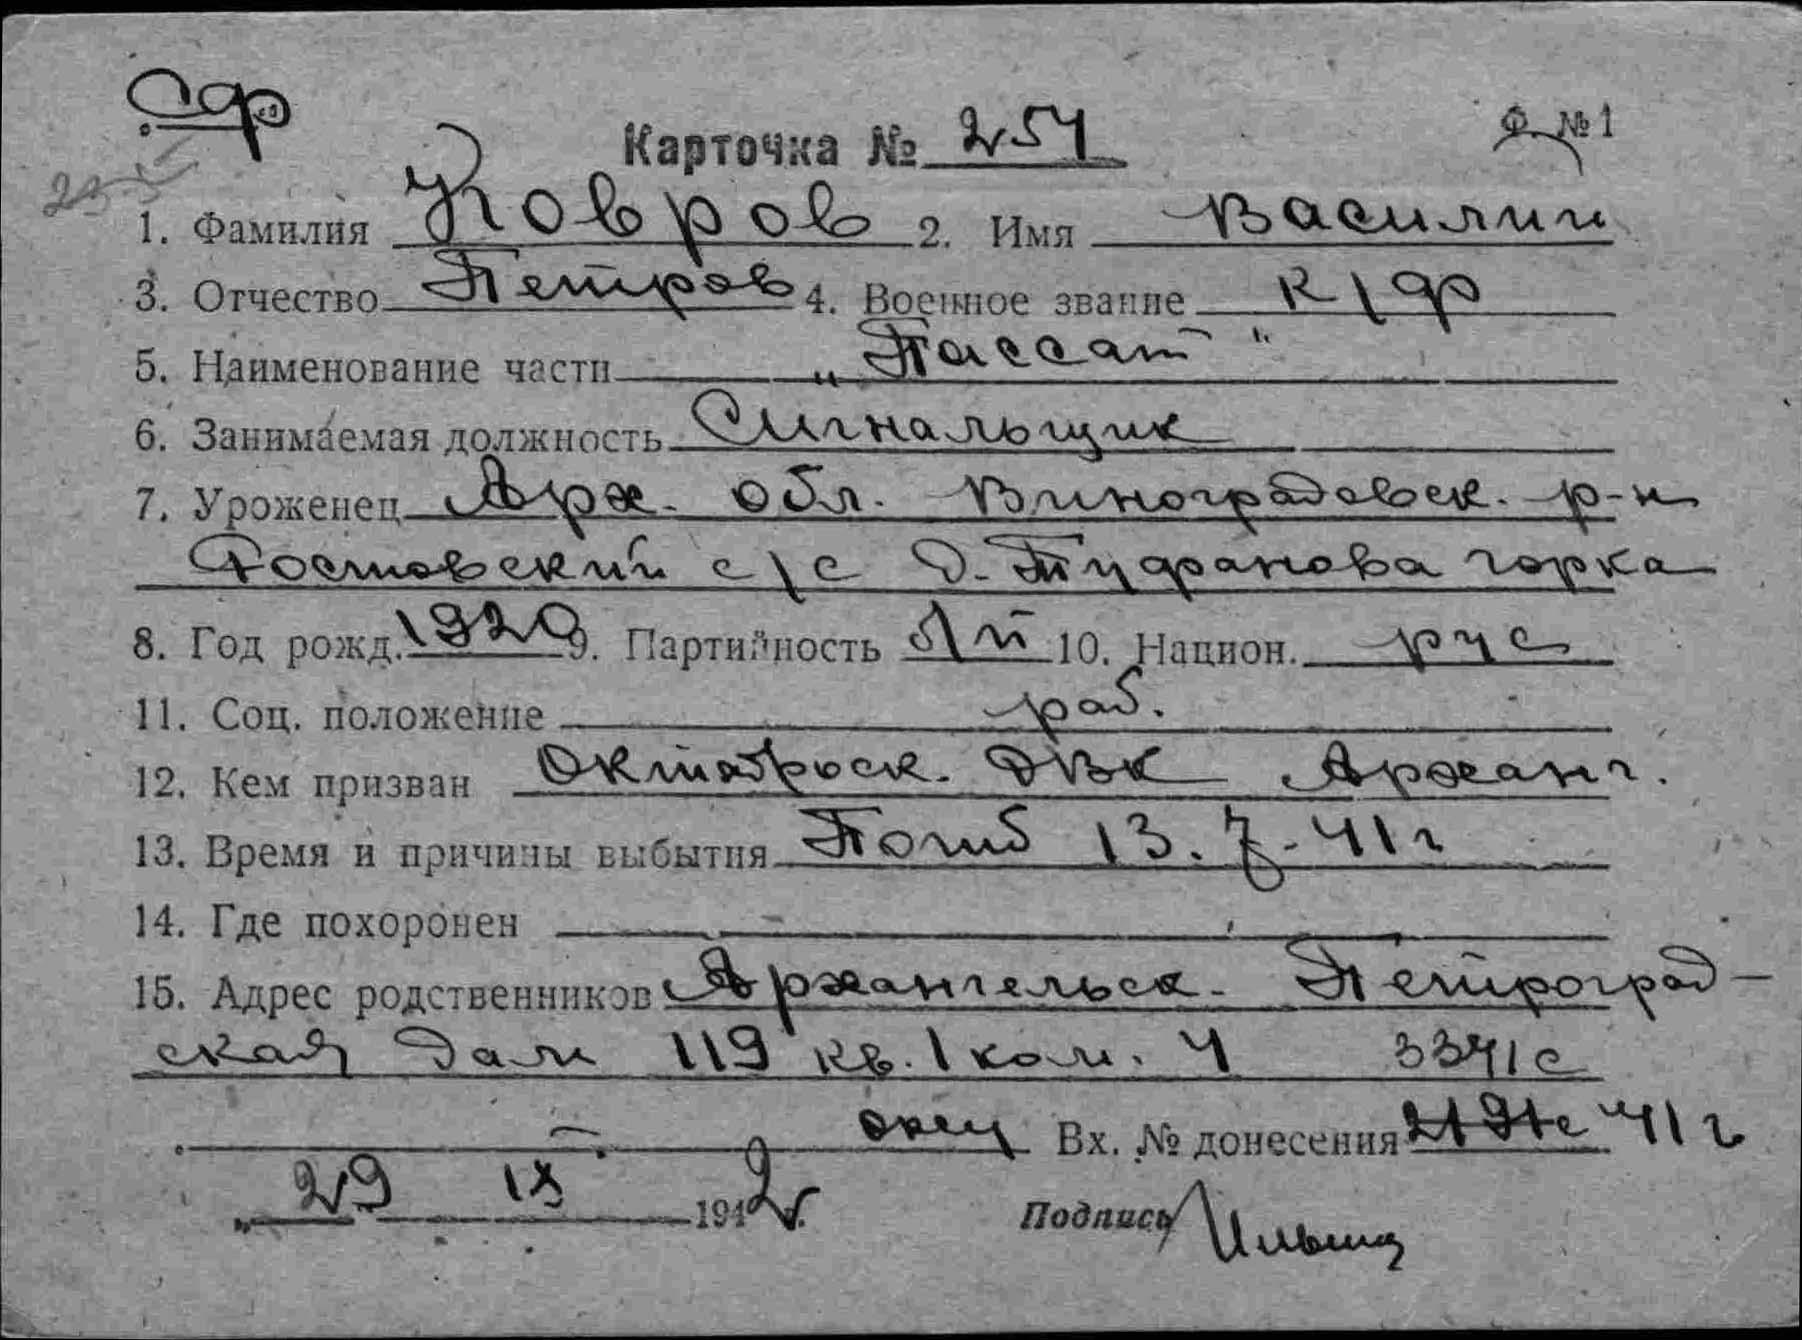 СФ
Карточка № 254 Ф. №1
1. Фамилия Ковров 2. Имя Василий
3. Отчество Петров 4. Военное звание к/ф
5. Наименование части „Пассат"
6. Занимаемая должность Сигнальщик
7. Уроженец Арх. обл. Виноградовск. р-н
Ростовский с/с д. Туфанова горка
8. Год рожд. 1920 9. Партийность б/п 10. Национ. рус
11. Соц. положение раб.
12. Кем призван Октябрьск. РВК Арханг.
13. Время и причины выбытия Погиб 13.7.41 г
14. Где похоронен
15. Адрес родственников Архангельск. Петроград-
ская дом 119 кв. 1 ком. 4 3371с
Вх. № донесения 41 г
„29 1942 г.
Подпись